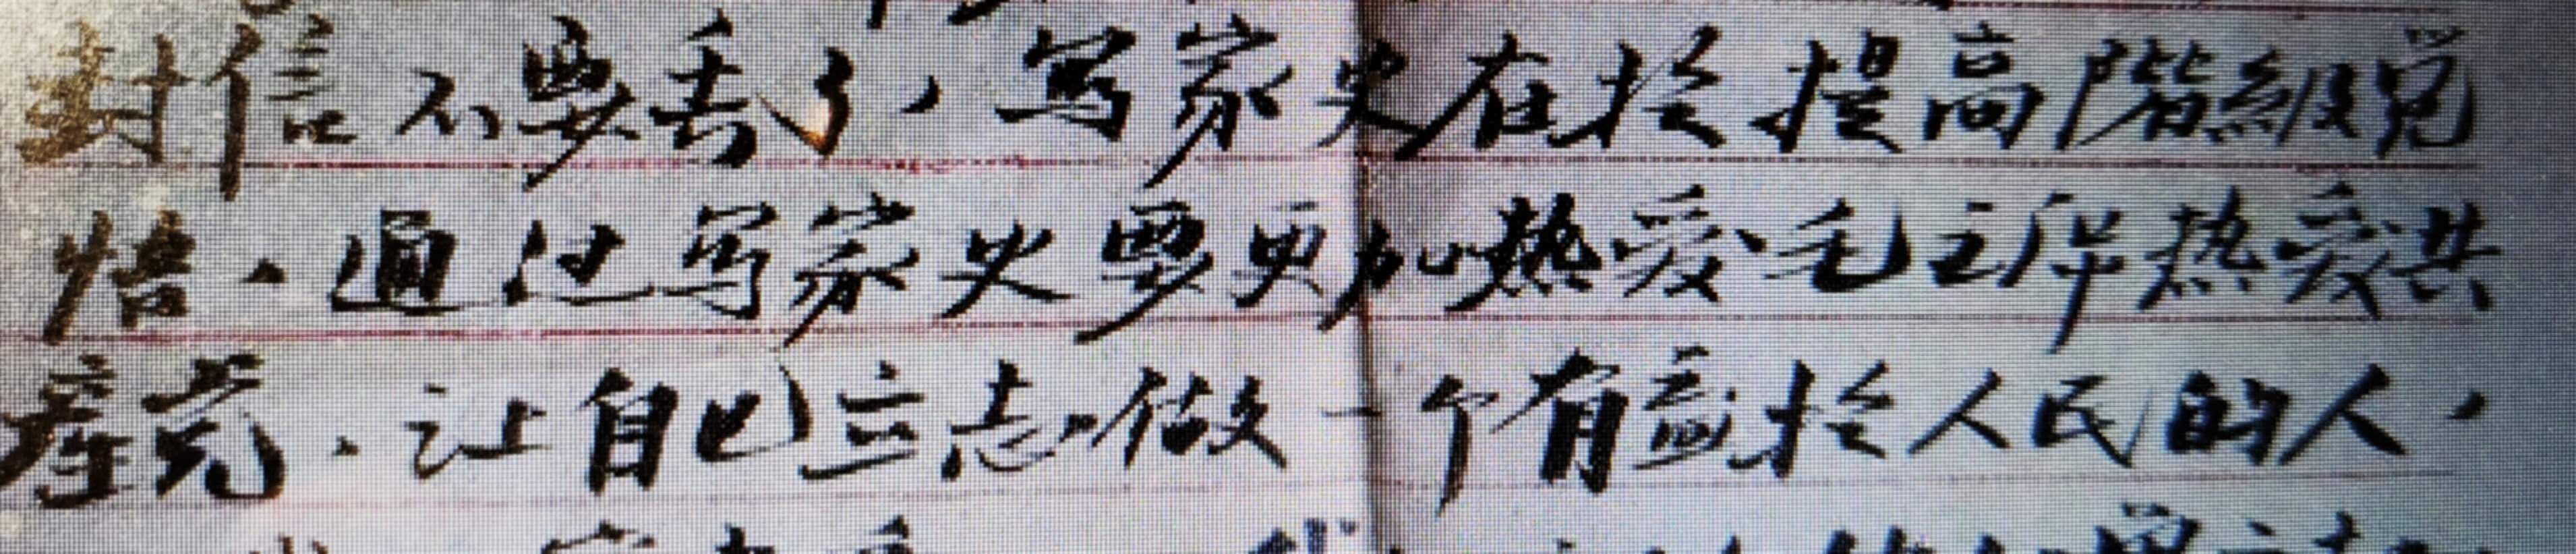 封信不要丢了，写家史在扵提高階級覚
悟，通过写家史要更加热爱毛主席热爱共
産党，让自己立志做一个有益扵人民的人，